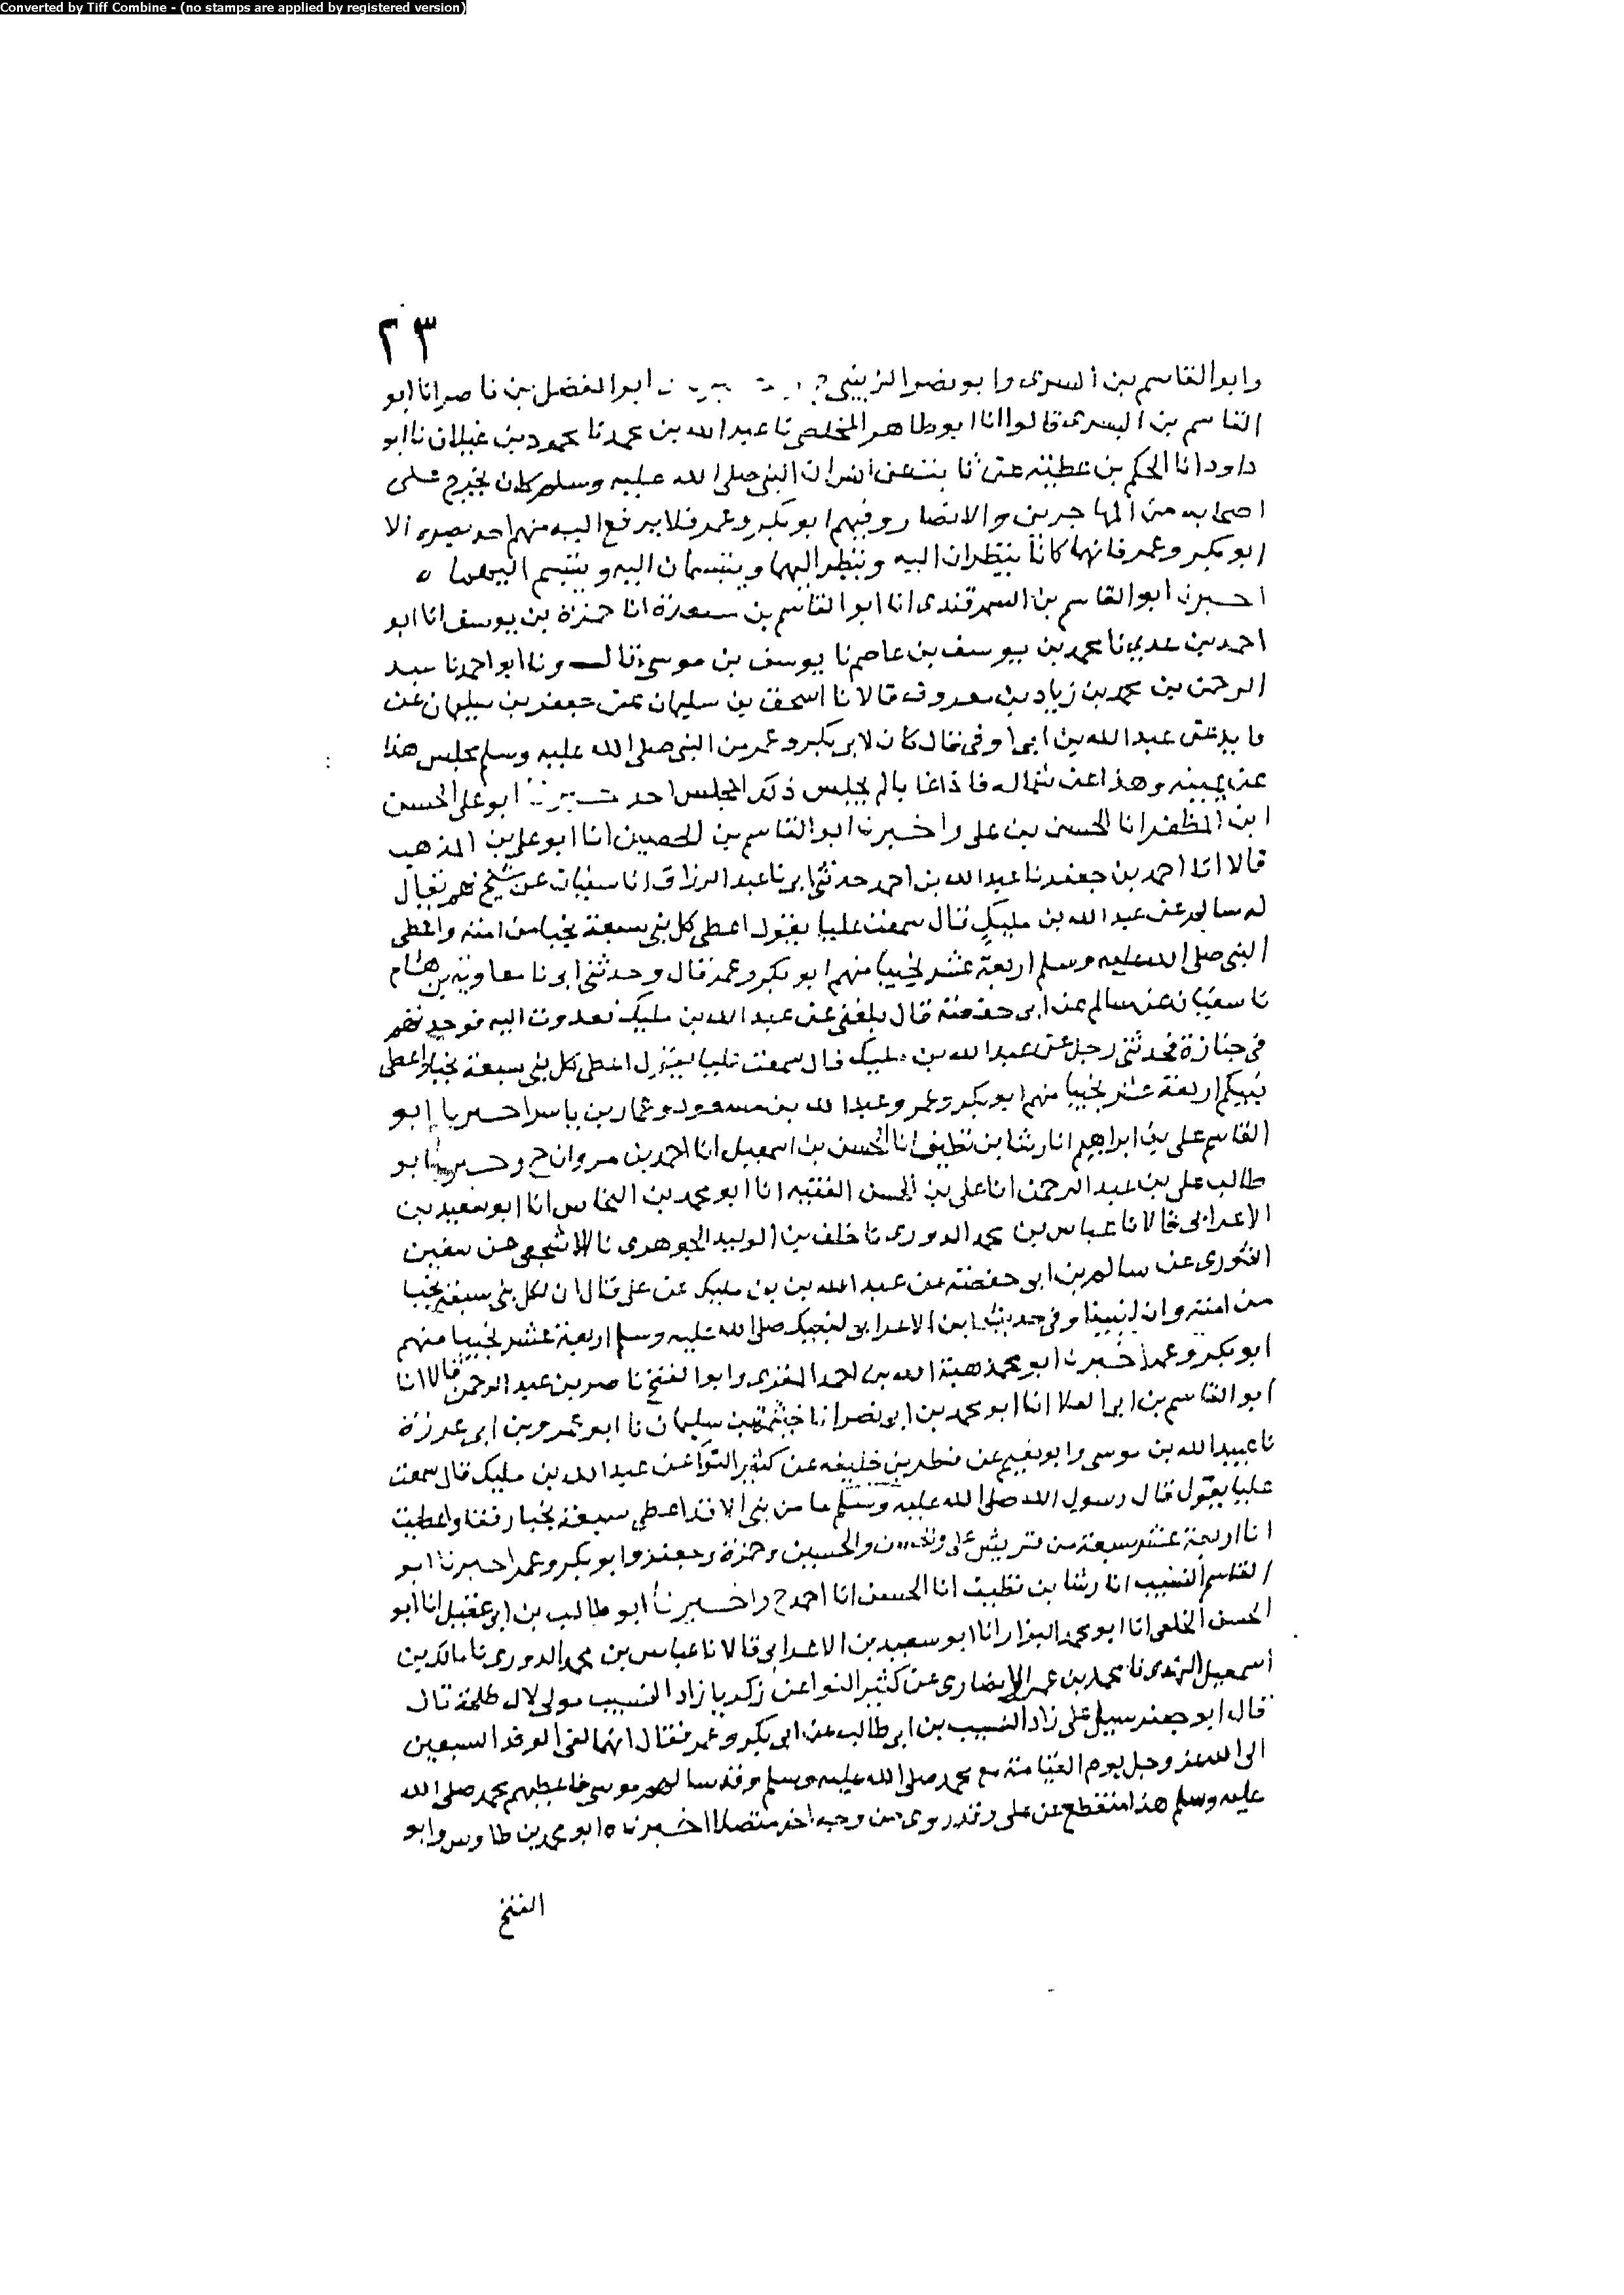 Converted by Tiff Combine - (no stamps are applied by registered version)
٢٣
وابوالقاسم بن البسرى وابو نصر الزينبى ابو الفضل بن ناصر انا ابو
القاسم بن البسرى قالوا انا ابو طاهر المخلص نا عبد الله بن محمد نا محمود بن غيلان نا ابو
داود انا الحكم بن عطية عن ثابت عن انس ان النبى صلى الله عليه وسلم كان يخرج على
اصحابه من المهاجرين والانصار وفيهم ابو بكر وعمر فلا يرفع اليه منهم احد بصره الا
ابو بكر وعمر فانهما كانا ينظران اليه وينظر اليهما ويتبسمان اليه ويتبسم اليهما ه
اخبرنا ابو القاسم بن السمرقندى انا ابو القاسم بن مسعدة انا حمزة بن يوسف انا ابو
احمد بن عدي نا محمد بن يوسف بن عاصم نا يوسف بن موسى قال ونا ابو احمد نا عبد
الرحمن بن محمد بن زياد بن معروف قالا نا اسحق بن سليمان عن جعفر بن سليمان عن
فايد عن عبد الله بن ابى اوفى قال كان لابى بكر وعمر من النبى صلى الله عليه وسلم مجلس هذا
عن يمينه وهذا عن شماله فاذا غابا لم يجلس ذلك المجلس احد اخبرنا ابو على الحسن
ابن المظفر انا الحسن بن على واخبرنا ابو القاسم بن الحصين انا ابو على بن المذهب
قالا انا احمد بن جعفر نا عبد الله بن احمد حدثنى ابى نا عبد الرزاق انا سفيان عن شيخ لهم يقال
له سالم عن عبد الله بن مليك قال سمعت عليا يقول اعطى كل نبى سبعة نجبا من امته واعطى
النبى صلى الله عليه وسلم اربعة عشر نجيبا منهم ابو بكر وعمر قال وحدثنى ابى نا معاوية بن هشام
نا سفيان عن سالم عن ابى حفصة قال بلغنى عن عبد الله بن مليك فغدوت اليه فوجدتهم
فى جنازة فحدثنى رجل عن عبد الله بن مليك قال سمعت عليا يقول اعطى كل نبى سبعة نجبا واعطى
نبيكم اربعة عشر نجيبا منهم ابو بكر وعمر وعبد الله بن مسعود وعمار بن ياسر اخبرنا ابو
القاسم على بن ابراهيم انا رشا بن نظيف انا الحسن بن اسمعيل انا احمد بن مروان ح واخبرنا ابو
طالب على بن عبد الرحمن انا على بن الحسن الفقيه انا ابو محمد بن النحاس انا ابو سعيد بن
الاعرابى قالا نا عباس بن محمد الدورى نا خلف بن الوليد الجوهرى نا الاشجعى عن سفين
الثورى عن سالم بن ابى حفصة عن عبد الله بن مليك عن على قال ان لكل نبى سبعة نجبا
من امته وان لنبينا وفى حديث ابن الاعرابى لنبيك صلى الله عليه وسلم اربعة عشر نجيبا منهم
ابو بكر وعمر اخبرنا ابو محمد هبة الله بن احمد المقرى وابو الفتح ناصر بن عبد الرحمن قالا انا
ابو القاسم بن ابى العلا انا ابو محمد بن ابى نصر انا خيثمة بن سليمان نا ابو عمرو بن ابى غرزة
نا عبيد الله بن موسى وابو نعيم عن فطر بن خليفه عن كثير النوا عن عبد الله بن مليك قال سمعت
عليا يقول قال رسول الله صلى الله عليه وسلم ما من نبى الا قد اعطى سبعة نجبا رفقا واعطيت
انا اربعة عشر سبعة من قريش على والحسن والحسين وحمزة وجعفر وابو بكر وعمر اخبرنا ابو
القاسم النسيب انا رشا بن نظيف انا الحسن انا احمد ح واخبرنا ابو طالب بن ابى عقيل انا ابو
الحسن الخلعى انا ابو محمد البزار انا ابو سعيد بن الاعرابى قالا نا عباس بن محمد الدورى نا مالك بن
اسمعيل النهدى نا محمد بن عمر الانصارى عن كثير النوا عن زكريا زاد النسيب مولى لال طلحة قال
قال ابو جعفر سيل على زاد النسيب بن ابى طالب عن ابى بكر وعمر فقال انهما لفى الوفد السبعين
الى الله عز وجل يوم القيامة مع محمد صلى الله عليه وسلم وقد سالهم موسى فاعطيهم محمد صلى الله
عليه وسلم هذا منقطع عن على وقد روى من وجه اخر متصلا اخبرناه ابو محمد بن طاوس وابو
الفتح